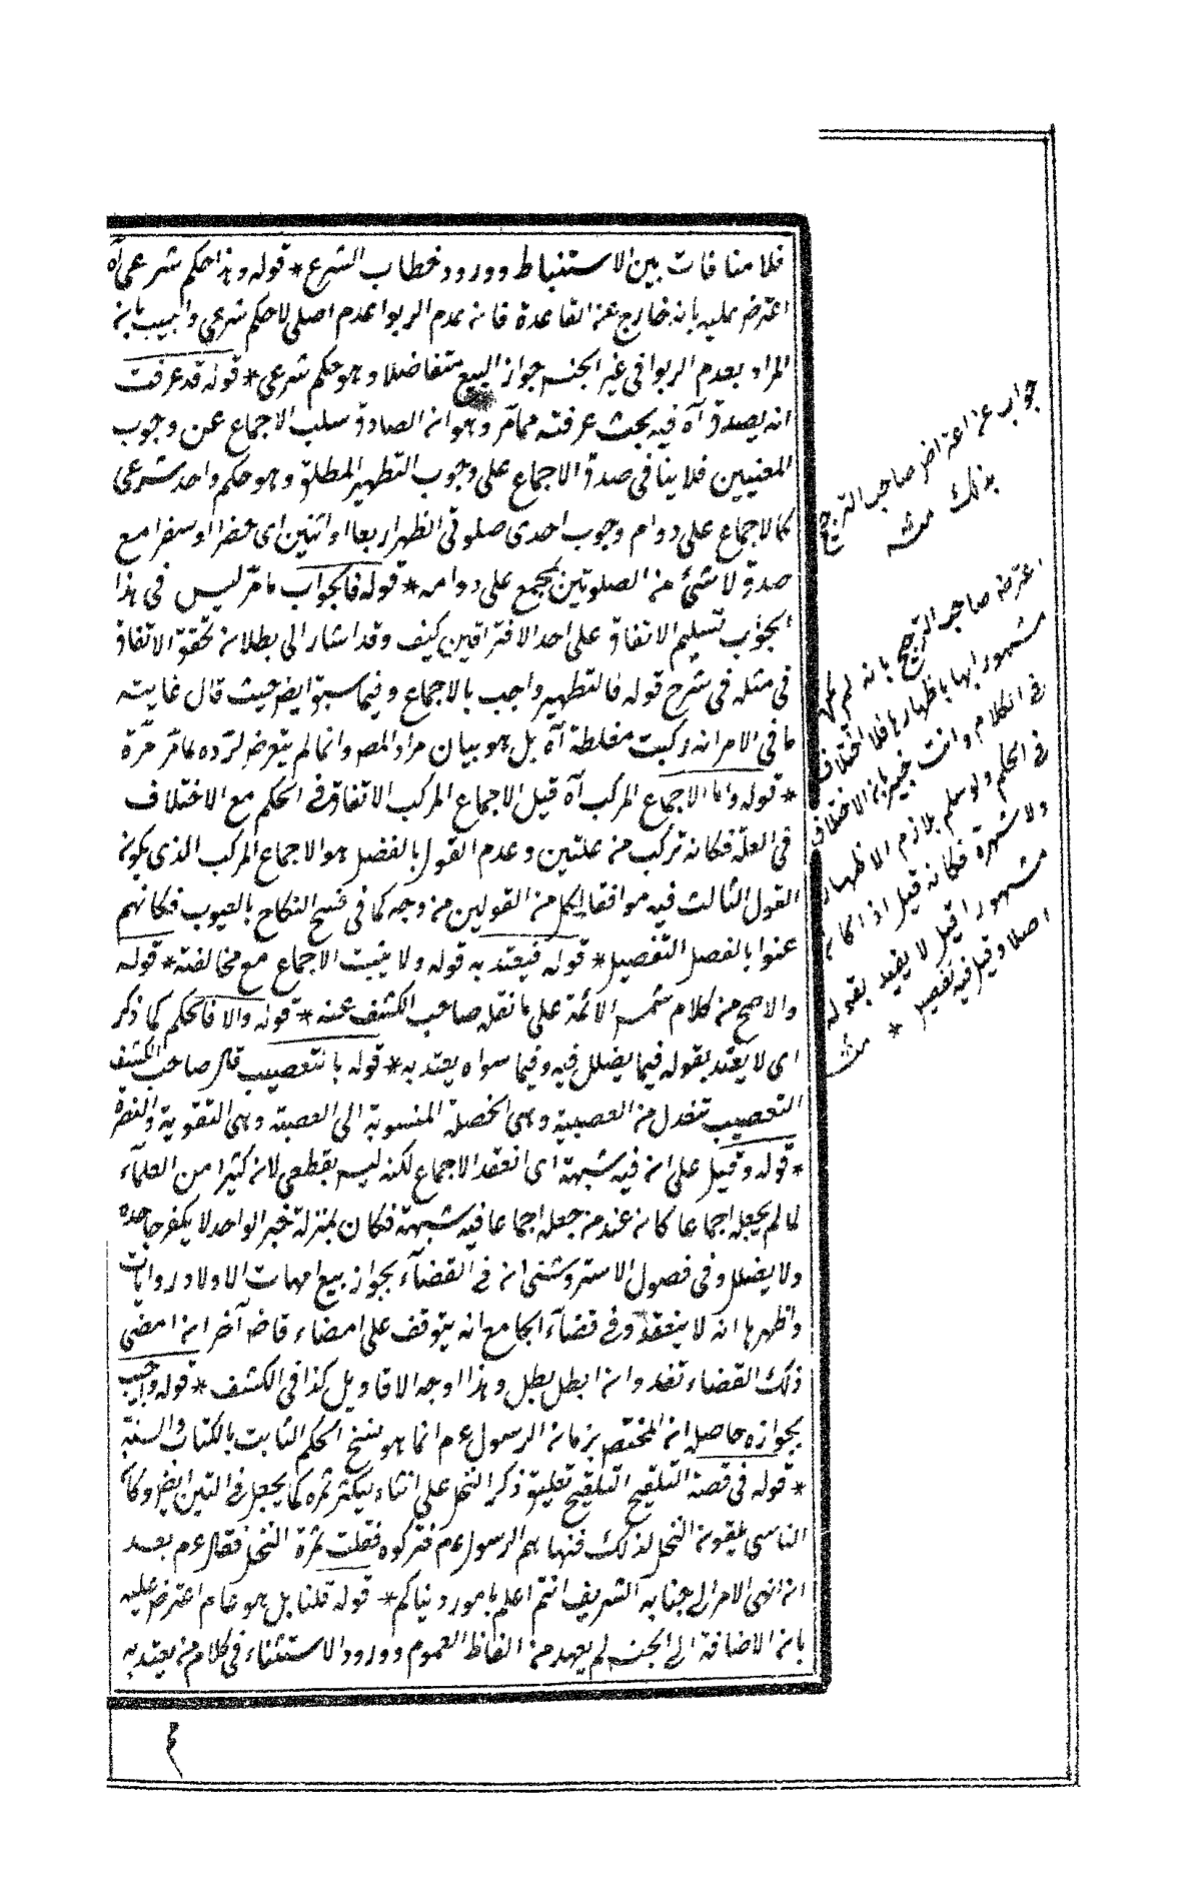 فلا منافات بين الاستنباط وورود خطاب الشرع * قوله وهذا حكم شرعي آه
اعترض عليه بانه خارج عن القاعدة فانه عدم الربوا عدم اصلي لا حكم شرعي واجيب بانه
المراد بعدم الربوا في غير الجنس جواز البيع متفاضلا وهو حكم شرعي * قوله قد عرفت
انه يصدق آه فيه بحث عرفته ممامّر وهو انه الصادق سلب الاجماع عن وجوب
المعنيين فلا ينافي صدق الاجماع على وجوب التطهير المطلق وهو حكم واحد شرعي
كالاجماع على دوام وجوب احدى صلوتي الظهر اربعا او اثنين اي حضرا او سفرا مع
صدق لا شئ من الصلوتين بمجمع على دوامه * قوله فالجواب مامّر ليس في هذا
الجواب تسليم الاتفاق على احد الافتراقين كيف وقد اشار الى بطلانه تحقق الاتفاق
في مثله في شرح قوله فالتطهير واجب بالاجماع وفيما سبق ايضا حيث قال غايته
ما في الامر انه ركبت مغلطة آه بل هو بيان مراد المصـ وانما لم يتعرض لرّده مامّر مرّة
* قوله واما الاجماع المركب آه قيل الاجماع المركب الاتفاق في الحكم مع الاختلاف
في العلة فكانه تركب من علتين وعدم القول بالفصل هو الاجماع المركب الذي يكون
القول الثالث فيه موافقا لكل من القولين من وجه كما في فسخ النكاح بالعيوب فكانهم
عنوا بالفصل التفصيل * قوله فيعتد به قوله ولا يثبت الاجماع مع مخالفته * قوله
والاصح من كلام شمس الائمة على ما نقله صاحب الكشف عنه * قوله والا فالحكم كما ذكر
اى لا يعتد بقوله فيما يضلل فيه وفيما سواه يعتد به * قوله بالتعصيب قال صاحب الكشف
التعصيب تفعل من العصبية وهي الخصلة المنسوبة الى العصبة وهى التقوية والنصرة
* قوله وقيل على انه فيه شبهة اى انعقد الاجماع لكنه ليس بقطعي لانه كثيرا من العلماء
لما لم يجعله اجماعا كانه عند من جعله اجماعا فيه شبهة فكان بمنزلة خبر الواحد لا يكفر جاحده
ولا يضلل وفي فصول الاستروشنى انه في القضآء بجواز بيع امهات الاولاد روايات
واظهرها انه لا ينفذ وفي قضآء الجامع انه يتوقف على امضاء قاض آخر انه امضى
ذلك القضاء نفد وانه ابطل بطل وهذا اوجه الاقاويل كذا في الكشف * قوله واجيب
بجوازه حاصله انه المختص بزمانه الرسول عم انما هو نسخ الحكم الثابت بالكتاب والسنة
* قوله في قصة التلقيح التلقيح تعليق ذكر النخل على انثاه ليكثر ثمره كما يجعل في التين ايضا وكان
الناسي يلقونه النخل لذلك فنهاهم الرسول عم فتركوه فقلت ثمرة النخل فقال عم بعد
انه انهى الامر الى جنابه الشريف انتم اعلم بامور دنياكم * قوله قلنا بل هو عام اعترض عليه
بانه الاضافة الى الجنس لم يعهد من الفاظ العموم وورود الاستثناء في كلام من يعتد به
جواب عن اعتراض صاحب الترجيح
بذلك منه
اعترض صاحب الترجيح بانه لم يكن
مشهورا بها باظهارها فلا اختلاف
في الكلام وانت خبير بانه الاختلاف
في الحكم ولو سلم بلازم الاظهار
ولا شهرة فكانه قيل اذا كانه
مشهورا قيل لا يعتد بقوله
اصلا وقيل فيه تفصيل * منه